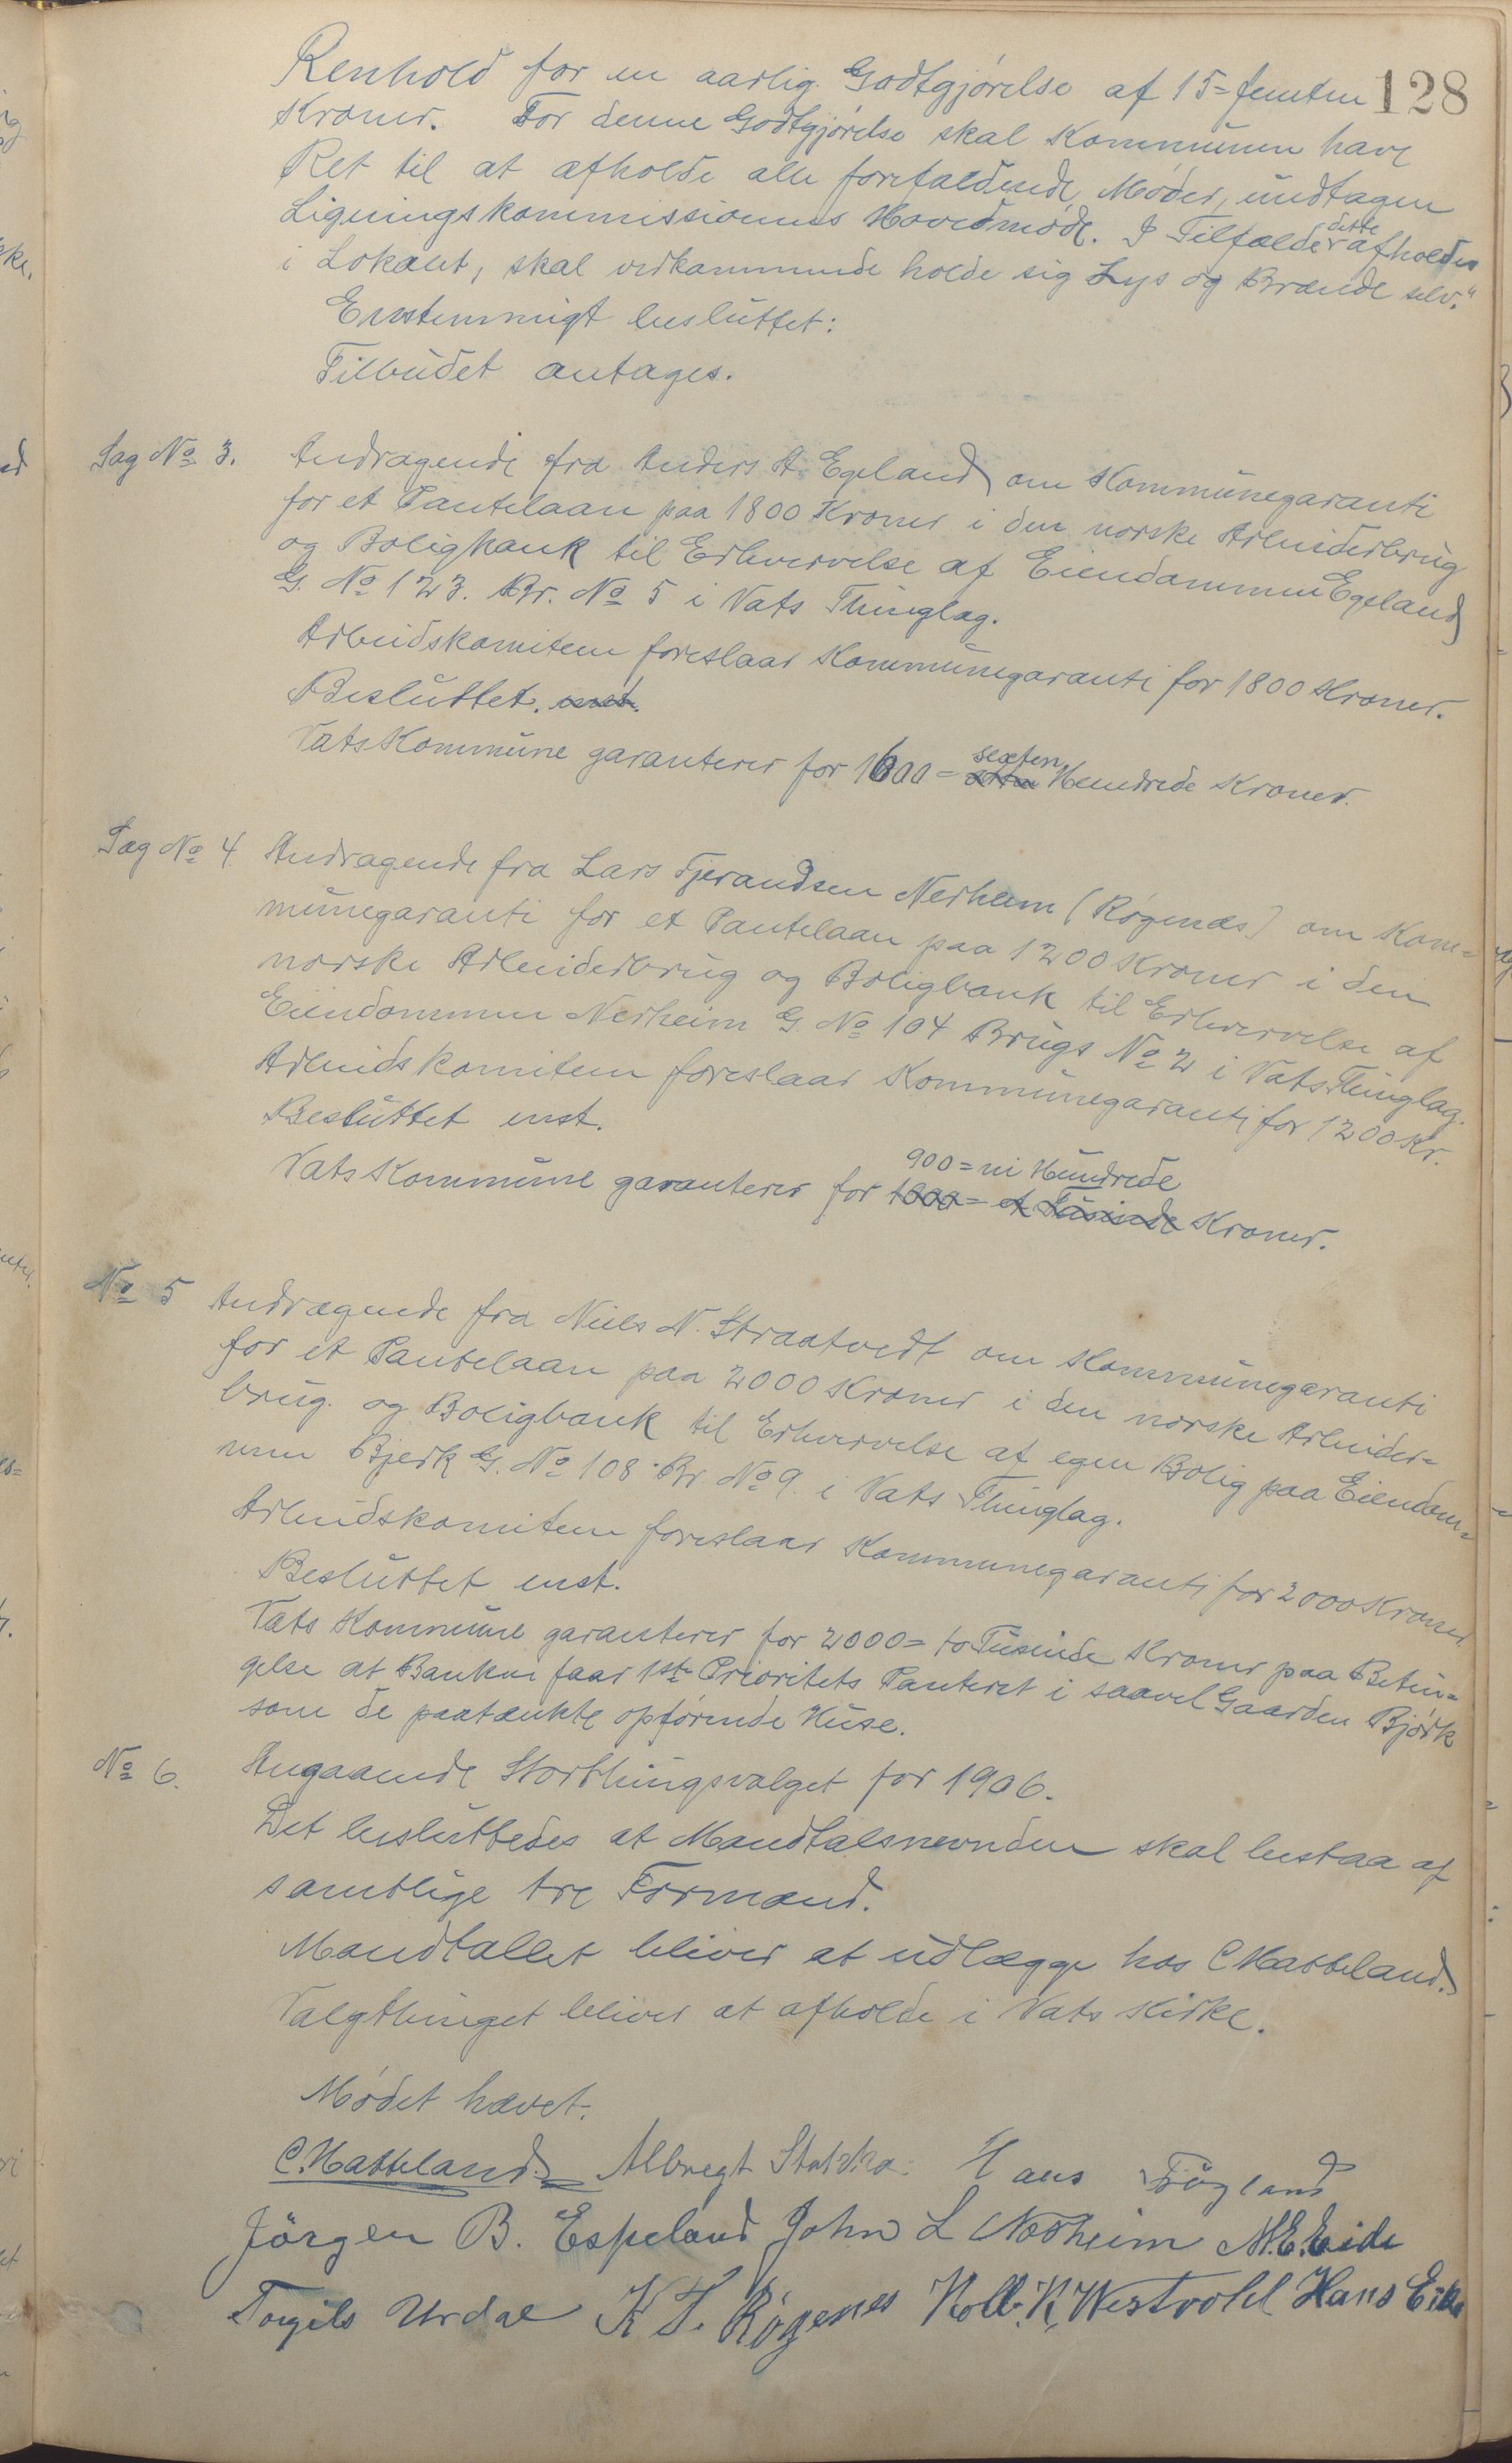 128
Renhold for en aarlig Godtgjørelse af 15 = femten
Kroner. For denne Godtgjørelse skal Kommunen have
Ret til at afholde alle forefaldende Møder, undtagen
Ligningskommissionens Hovedmøde. I Tilfælde dette afholdes
i Lokalet, skal vedkommende holde sig Lys og Brænde selv."
Enstemmigt besluttet:
Tilbudet antages.
Sag No 3. Andragende fra Anders A. Egeland om Kommunegaranti
for et Pantelaan paa 1800 Kroner i den norske Arbeiderbrug
og Boligbank til Erhvervelse af Eiendommen Egeland
G. No 123. Br. No 5 i Vats Thinglag.
Arbeidskomiteen foreslaar Kommunegaranti for 1800 Kroner.
Besluttet. enst.
Vats Kommune garanterer for 1600 = sexten Hundrede Kroner.
Sag No 4. Andragende fra Lars Tjerandsen Nerheim (Røgenæs) om Kom=
munegaranti for et Pantelaan paa 1200 Kroner i den
norske Arbeiderbrug og Boligbank til Erhvervelse af
Eiendommen Nerheim G. No 104 Brugs No 2 i Vats Thinglag.
Arbeidskomiteen foreslaar Kommunegaranti for 1200 Kr.
Besluttet enst.
900 = ni Hundrede
Vats Kommune garanterer for 1000 = et Tusinde Kroner.
No 5 Andragende fra Niels N. Straatvedt om Kommunegaranti
for et Pantelaan paa 2000 Kroner i den norske Arbeider=
brug og Boligbank til Erhvervelse af egen Bolig paa Eiendom=
men Bjerk G. No 108 Br. No 9. i Vats Thinglag.
Arbeidskomiteen foreslaar Kommunegaranti for 2000 Kroner
Besluttet enst.
Vats Kommune garanterer for 2000 = to Tusinde Kroner paa Betin=
gelse at Banken faar 1ste Prioritets Panteret i saavel Gaarden Bjørk
som de paatænkte opførende Huse.
No 6. Angaaende Storthingsvalget for 1906.
Det besluttedes at Mandtalsnevnden skal bestaa af
samtlige tre Formænd.
Mandtallet bliver at udlægge hos C Hatteland.
Valgthinget bliver at afholde i Vats Kirke.
Mødet hævet.
C. Hatteland. Albregt Hans Føgland
Jörgen B. Espeland John L Norheim M.E. Eide
Torgils Urdal K T. Røgenes K. Westvold Hans Eike